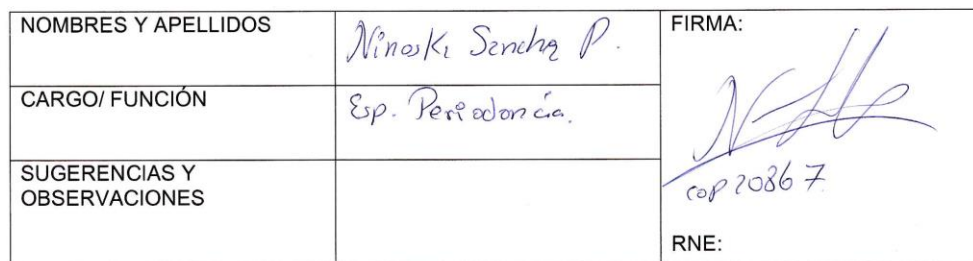 NOMBRES Y APELLIDOS
Ninoska Sancha P.
FIRMA:
CARGO/ FUNCIÓN
Esp. Periodoncia.
SUGERENCIAS Y
OBSERVACIONES
COP 20867
RNE: